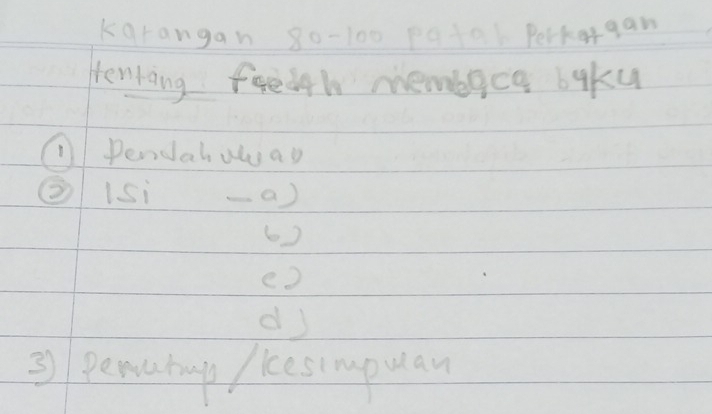 Karangan 80-100 patah Perkataan
tentang faedah membaca buku
① Pendahuluan
② Isi - a)
b)
c)
d)
3) Penutup/Kesimpulan